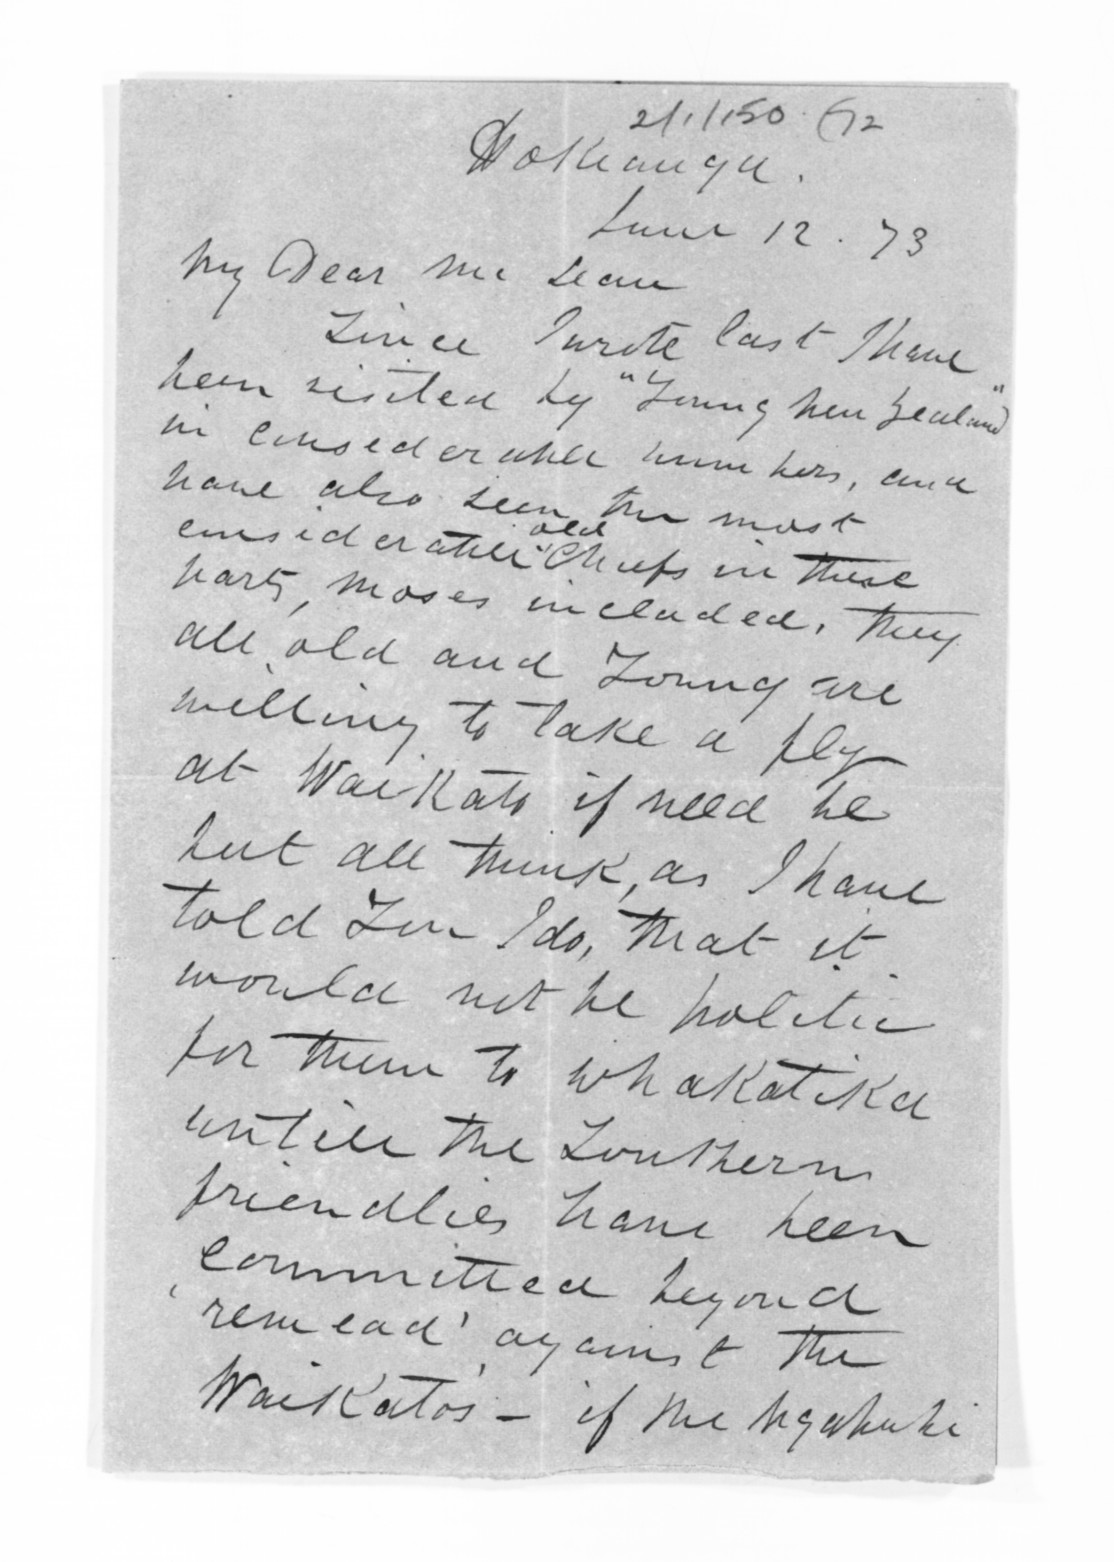 2/1/150 (72
Hokianga.
June 12. 73
My Dear Mc Lean
Since I wrote last I have
been visited by "Young New Zealand"
in considerable numbers, and
have also seen the most
considerable old Chiefs in these
parts, Moses included. they
all, old and Young are
willing to take a fly
at Waikato if need be
but all think, as I have
told You I do, that it
would not be politic
for them to whakatika
untill the Southern
friendlies have been
committed beyond
'remead' against the
Waikatos - if the Ngapuhi